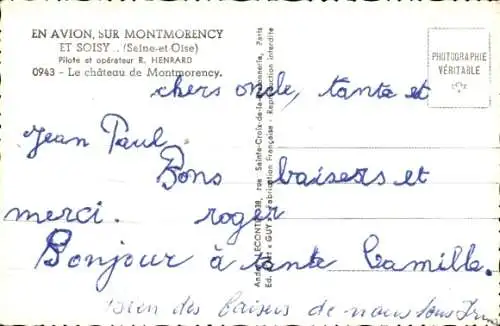 EN AVION, SUR MONTMORENCY
ET SOISY... (Seine-et-Oise)
Pilote et opérateur R. HENRARD
0943 - Le château de Montmorency.
PHOTOGRAPHIE
VÉRITABLE
chers oncle, tante et
Jean Paul.
Bons baisers et
merci. roger
Bonjour à tante Camille.
Bien des baisers de nous tous
rue Sainte-Croix-de-la-Bretonnerie, Paris
Fabrication Française - Reproduction interdite